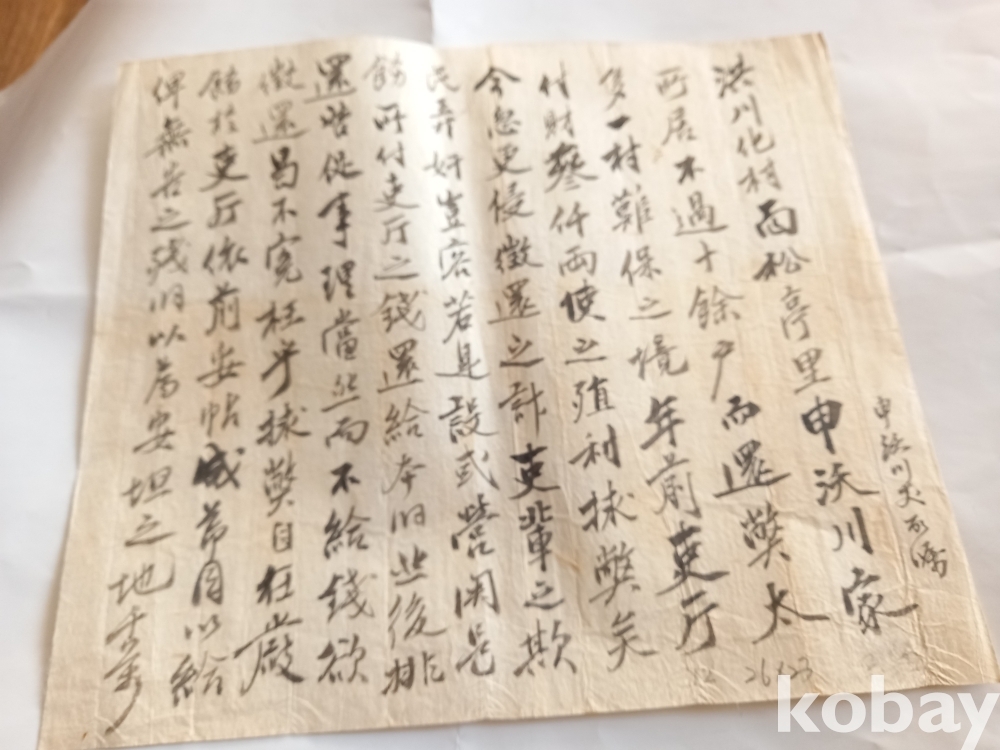 申沃川宅所囑
洪川化村面松亭里申沃川家
所居不過十餘戶而還弊太
多一村難保之境年前吏厅
付財叄仟兩使之殖利捄弊矣
今忽更侵徵還之計吏輩之欺
民弄奸豈容若是設或營關是
飭所付吏厅之錢還給本洞然後排
還皆從事理當然而不給錢欲
徵還曷不寃枉乎捄弊自在嚴
飭於吏厅依前安帖成節目以給
俾無苦之殘洞以爲安坦之地幸
26623
kobay